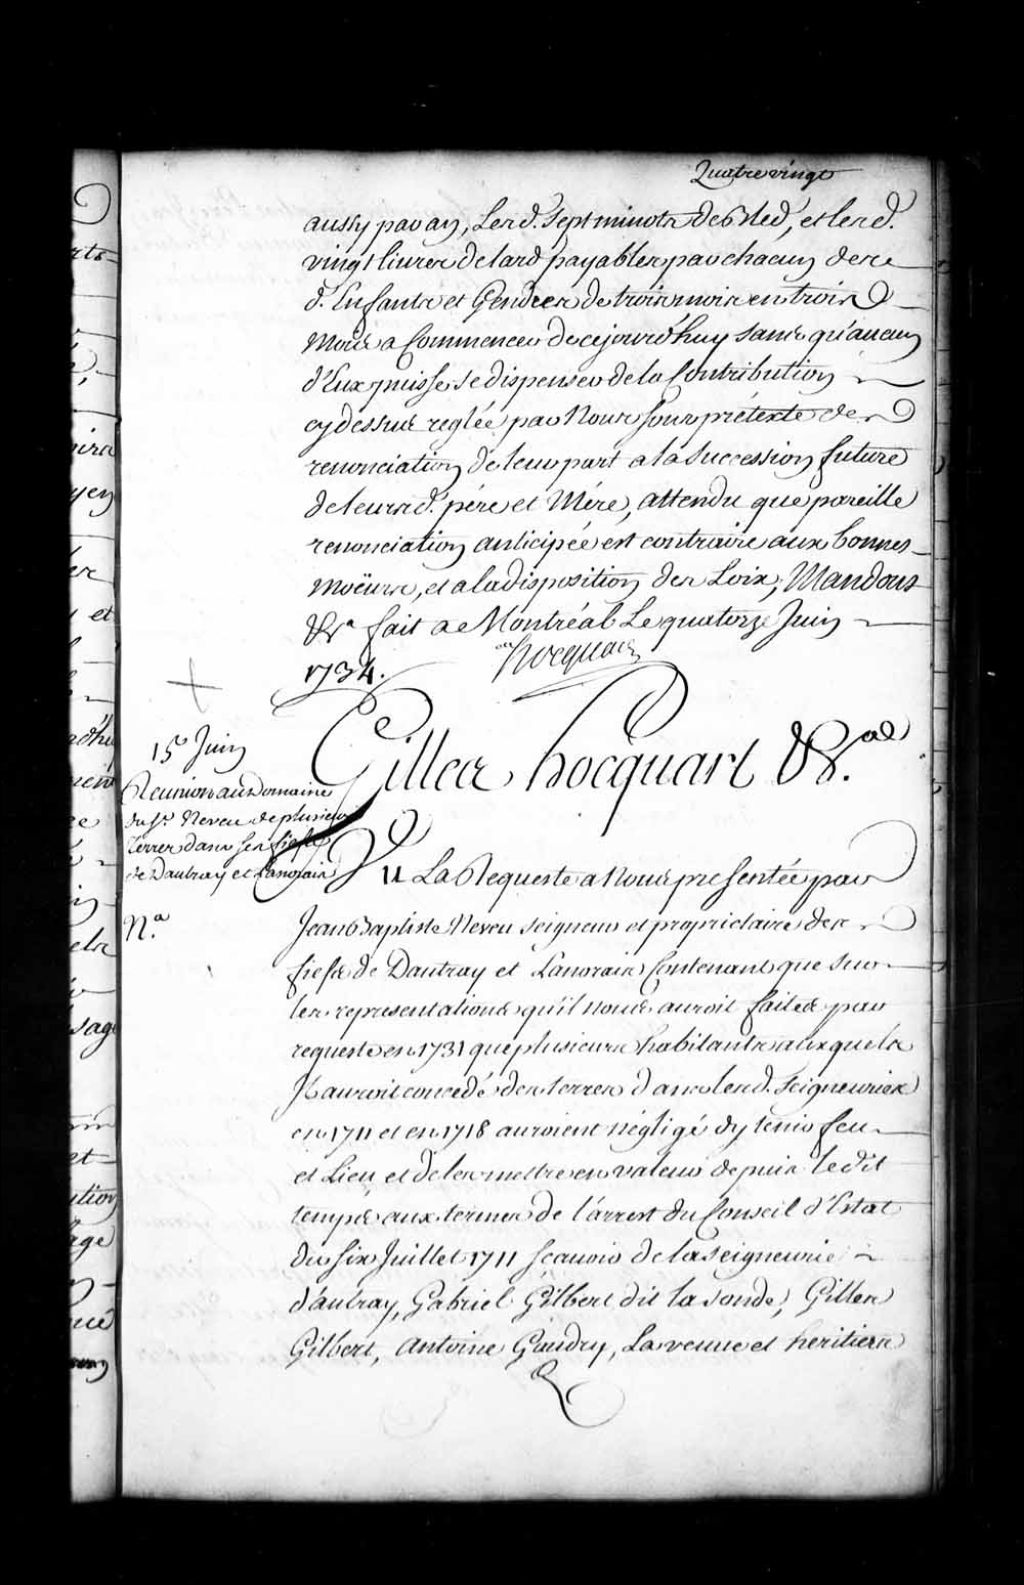 Quatrevingt
aussy par an, Lesd. Sept minots de bled, et lesd.
vingt livres de lard payables par chacun desce
d. Enfants et Gendres de trois mois en trois
Mois a Commencer de cejourd'huy sans qu'aucun
d'Eux puisse se dispenser de la Contribution
cy dessus reglée par Nous sous prétexte de
renonciation de leur part a la Succession future
de leursd. pére et Mére, attendu que pareille
renonciation anticipée est contraire aux bonnes
moëurs, et a la disposition des Loix; Mandons
&a fait a Montréal Le quatorze Juin
1734.
hocquart
15e Juin
Reunion au Domaine
du Sr. Neveu de plusieurs
terres dans ses fiefs
de Dautray et Lanoraie
Na.
Gilles hocquart &a.
Vu La Requeste a Nous presentée par
Jean Baptiste Neveu seigneur et proprietaire des
fiefs de Dautray et Lanoraie Contenant que sur
les representations qu'il nous auroit faites par
requeste en 1731 que plusieurs habitants auxquels
Il auroit concedé des terres dans lesd. seigneuries
en 1711 et en 1718 auroient négligé d'y tenir feu
et Lieu et de les mettre en valeur depuis le dit
temps aux termes de l'arrest du Conseil d'Estat
du six Juillet 1711 sçavoir de la seigneurie
d'autray, Gabriel Gilbert dit la sonde, Gilles
Gilbert, Antoine Gaudry, La veuve et heritiers